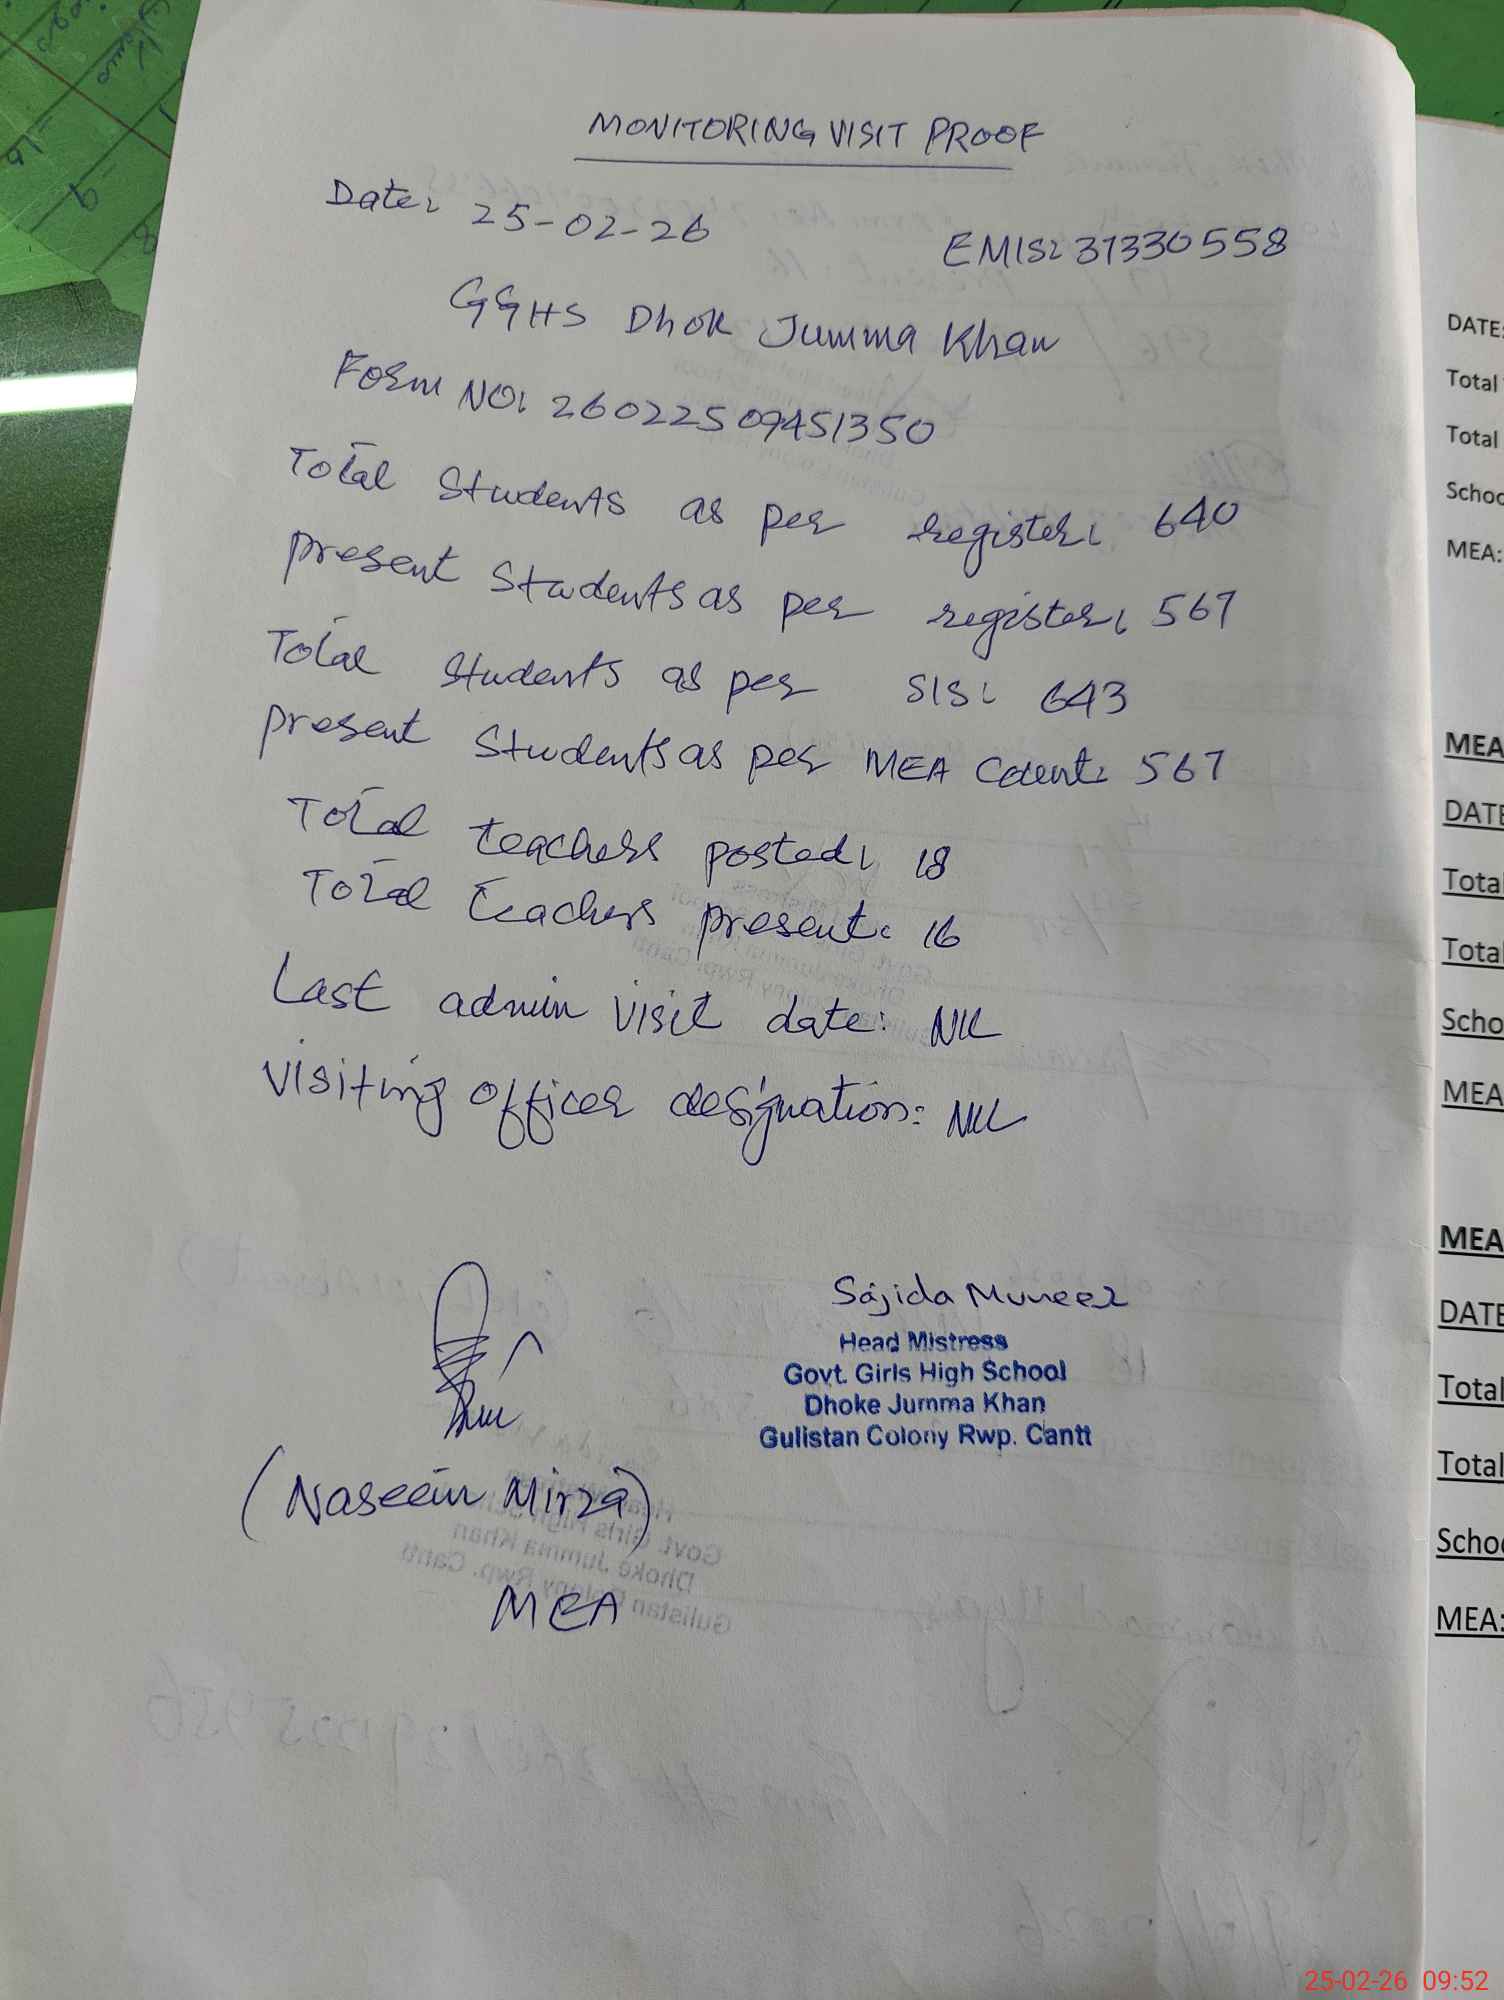 MONITORING VISIT PROOF
Date: 25-02-26
EMIS: 37330558
GGHS Dhok Jumma Khan
Form NO: 260225 09451350
Total Students as per register: 640
present Students as per register: 567
Total Students as per SIS: 643
present Students as per MEA Count: 567
Total teachers posted: 18
Total teachers present: 16
Last admin visit date: NIL
visiting officer designation: NIL
Sajida Muneer
Head Mistress
Govt. Girls High School
Dhoke Jumma Khan
Gulistan Colony Rwp. Cantt
(Naseem Mirza)
MEA
DATE:
Total
Total
Schoo
MEA:
MEA
DATE
Total
Total
Scho
MEA
MEA
DATE
Total
Total
Schoo
MEA:
25-02-26 09:52